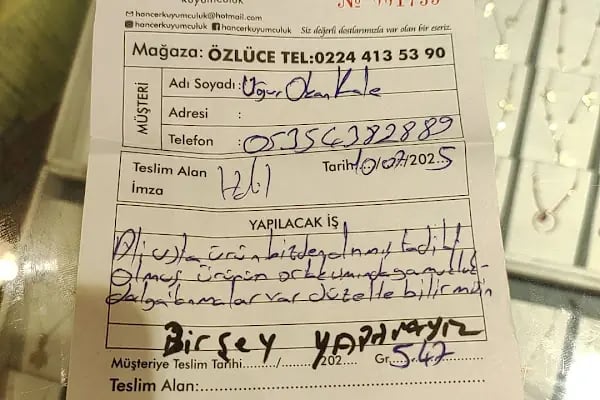 kuyumculuk
hancerkuyumculuk@hotmail.com
hancerkuyumculuk hancerkuyumculuk
Siz değerli dostlarımızla var olan bir eseriz.
Mağaza: ÖZLÜCE TEL:0224 413 53 90
MÜŞTERİ
Adı Soyadı : Uğur Okan Kale
Adresi :
Telefon : 05354382889
Teslim Alan
İmza
Tarih 10/07/2025
YAPILACAK İŞ
Ali usta ürün bizden alınmış tadilat
olmuş ürünün arkasında yamukluk
dalgalanmalar var düzeltebilirmisin
Birşey YAPAMAYIZ
Müşteriye Teslim Tarihi......../......../202.... Gr. 5.47
Teslim Alan: